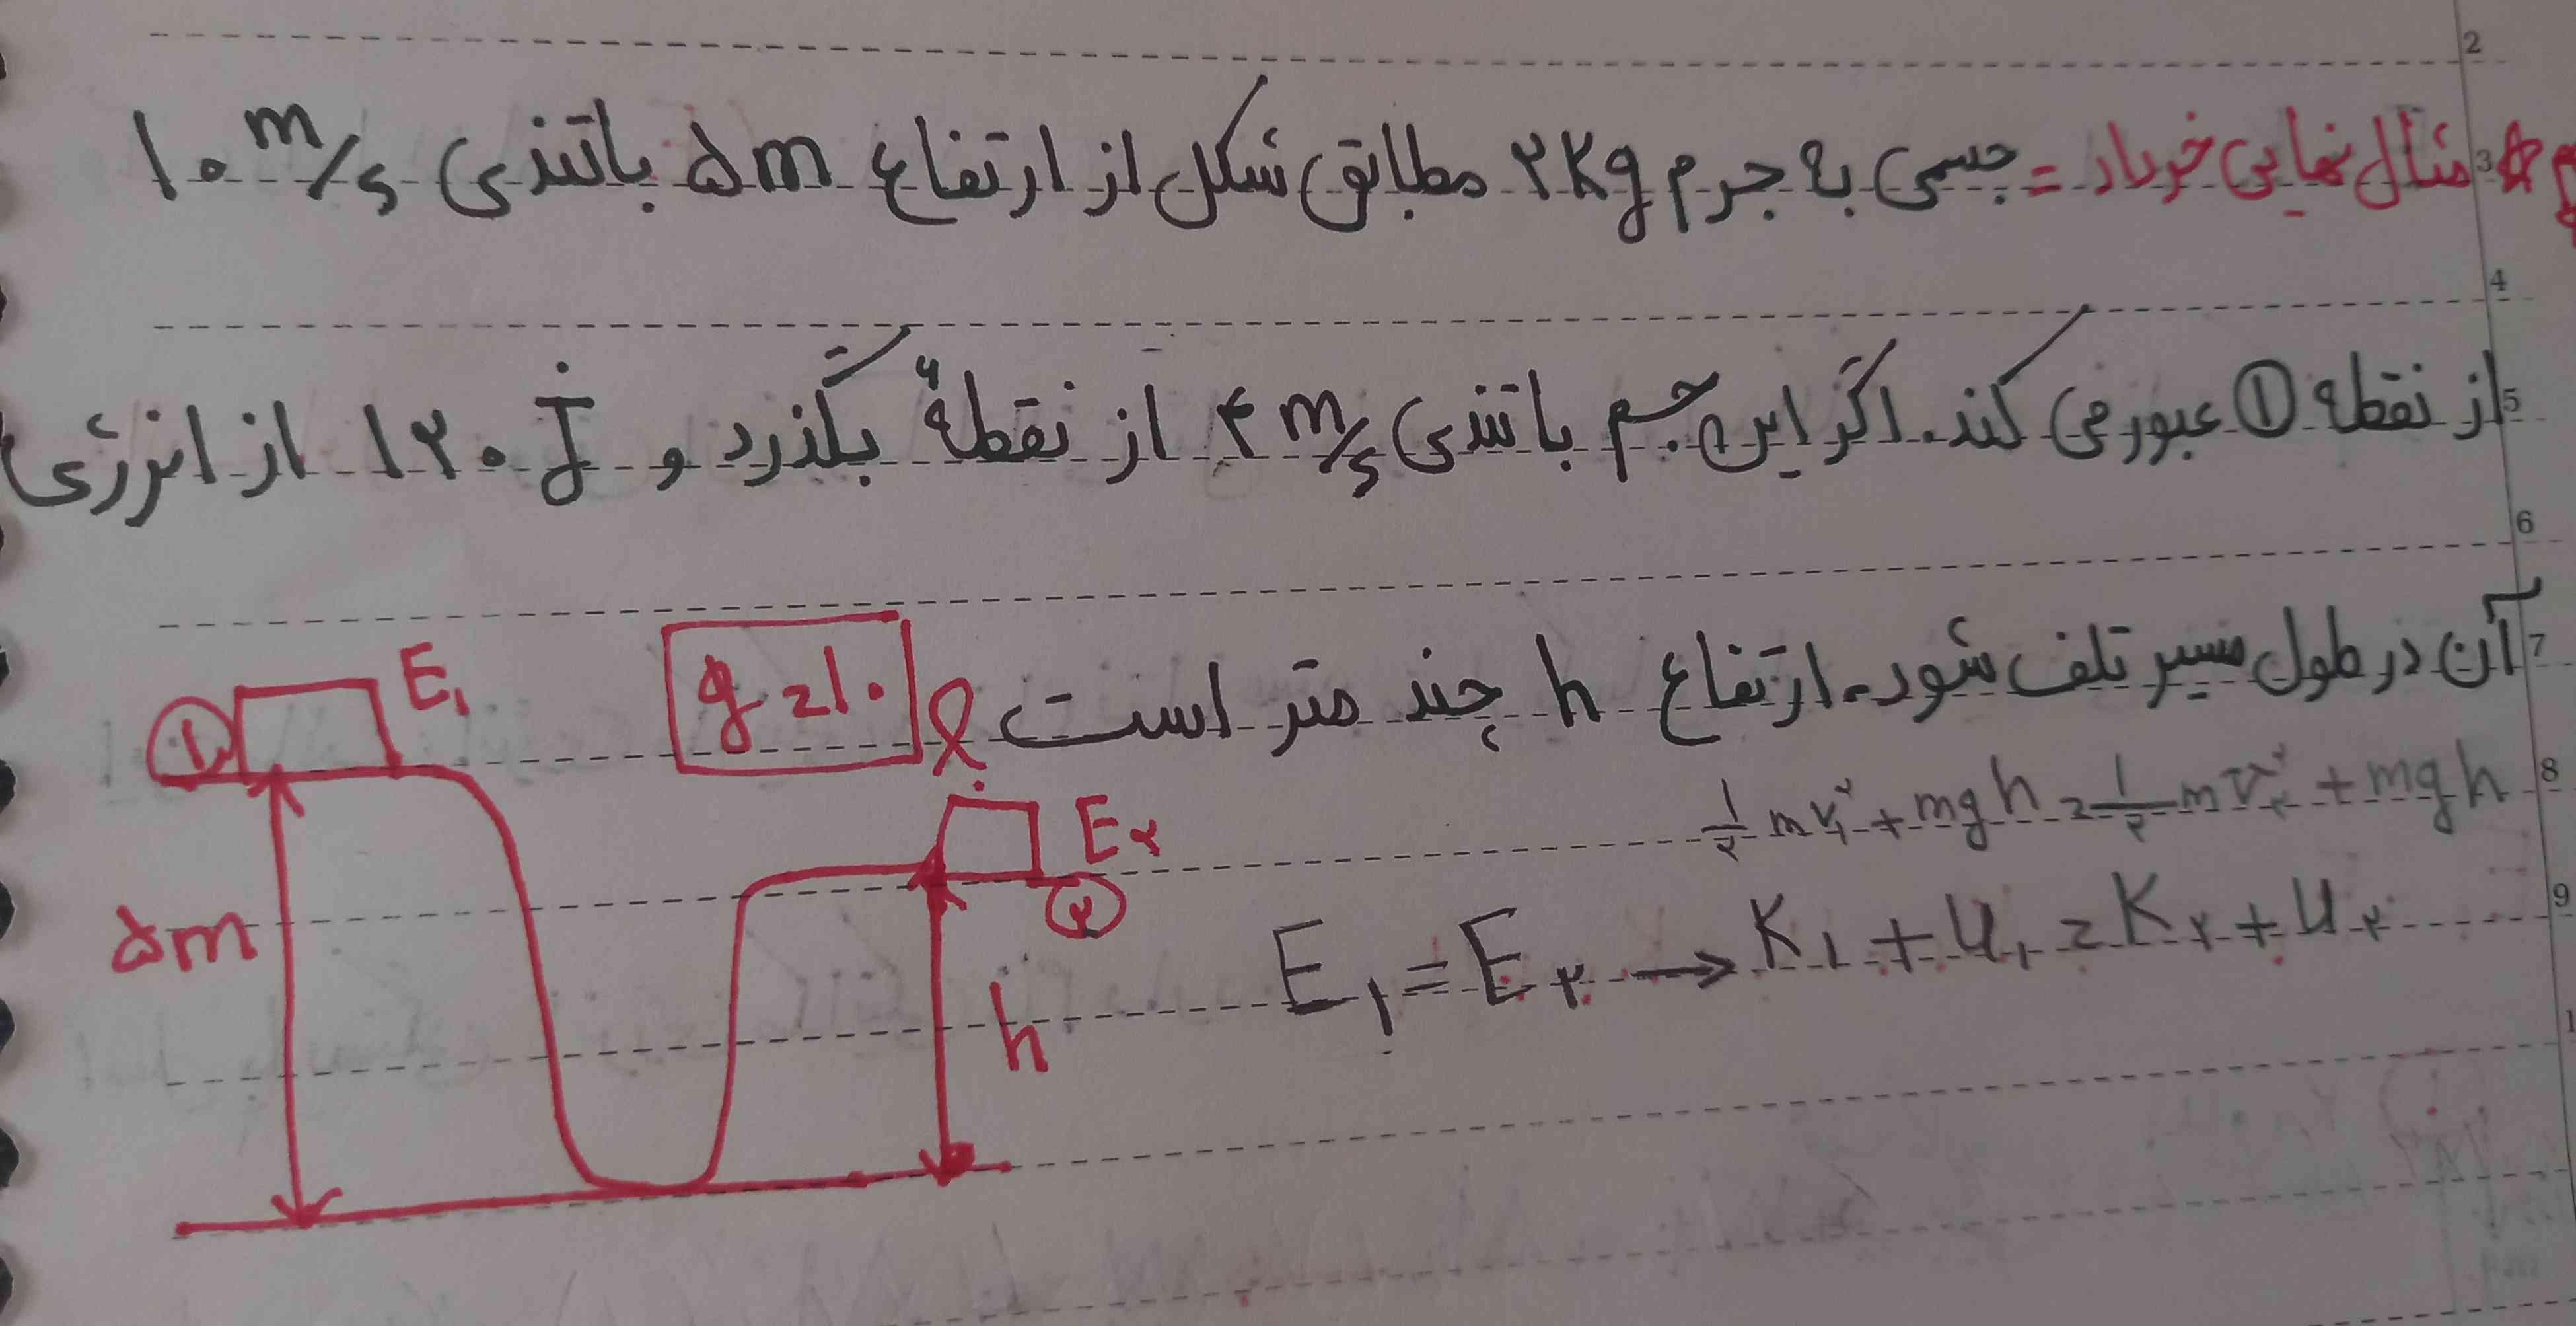 مثال نهایی خرداد = جسمی به جرم ۲Kg مطابق شکل از ارتفاع ۵m باتندی ۱۰ m/s
از نقطه ① عبور می کند. اگر این جسم با تندی ۴ m/s از نقطهٔ ۲ بگذرد و ۱۲۰ J از انرژی
آن در طول مسیر تلف شود. ارتفاع h چند متر است ؟ g=۱۰
½ mv₁² + mgh = ½ mv₂² + mgh
E₁ = E₂ → K₁ + U₁ = K₂ + U₂
① E₁
E₂
②
۵m
h
2
3
4
5
6
7
8
9
1